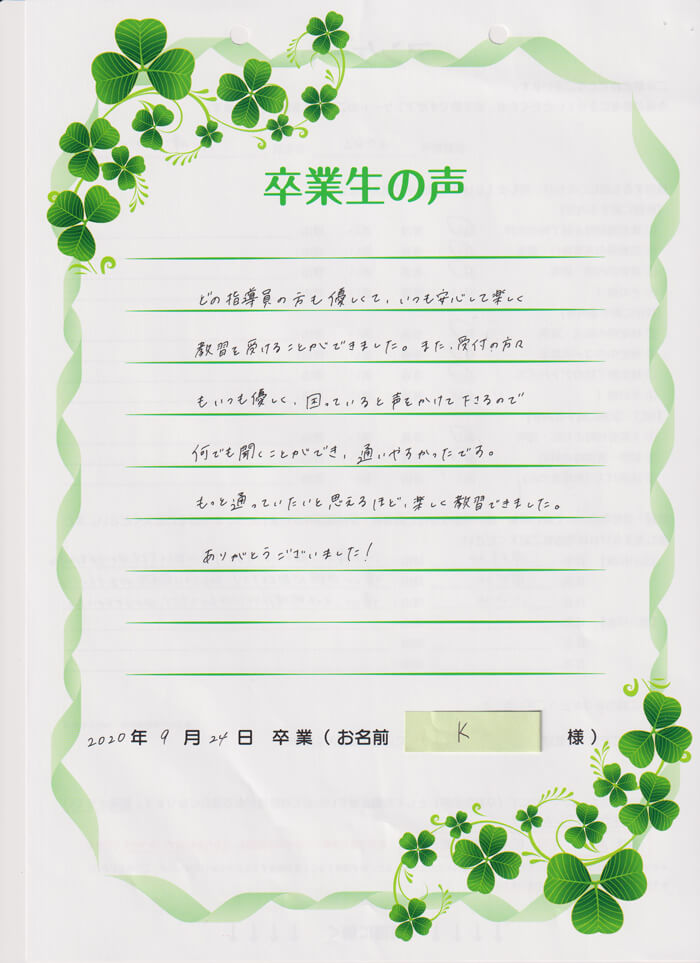 卒業生の声
どの指導員の方も優しくて、いつも安心して楽しく
教習を受けることができました。また、受付の方々
もいつも優しく、困っていると声をかけて下さるので
何でも聞くことができ、通いやすかったです。
もっと通っていたいと思えるほど、楽しく教習できました。
ありがとうございました!
2020年 9月 24日 卒業(お名前 K 様)